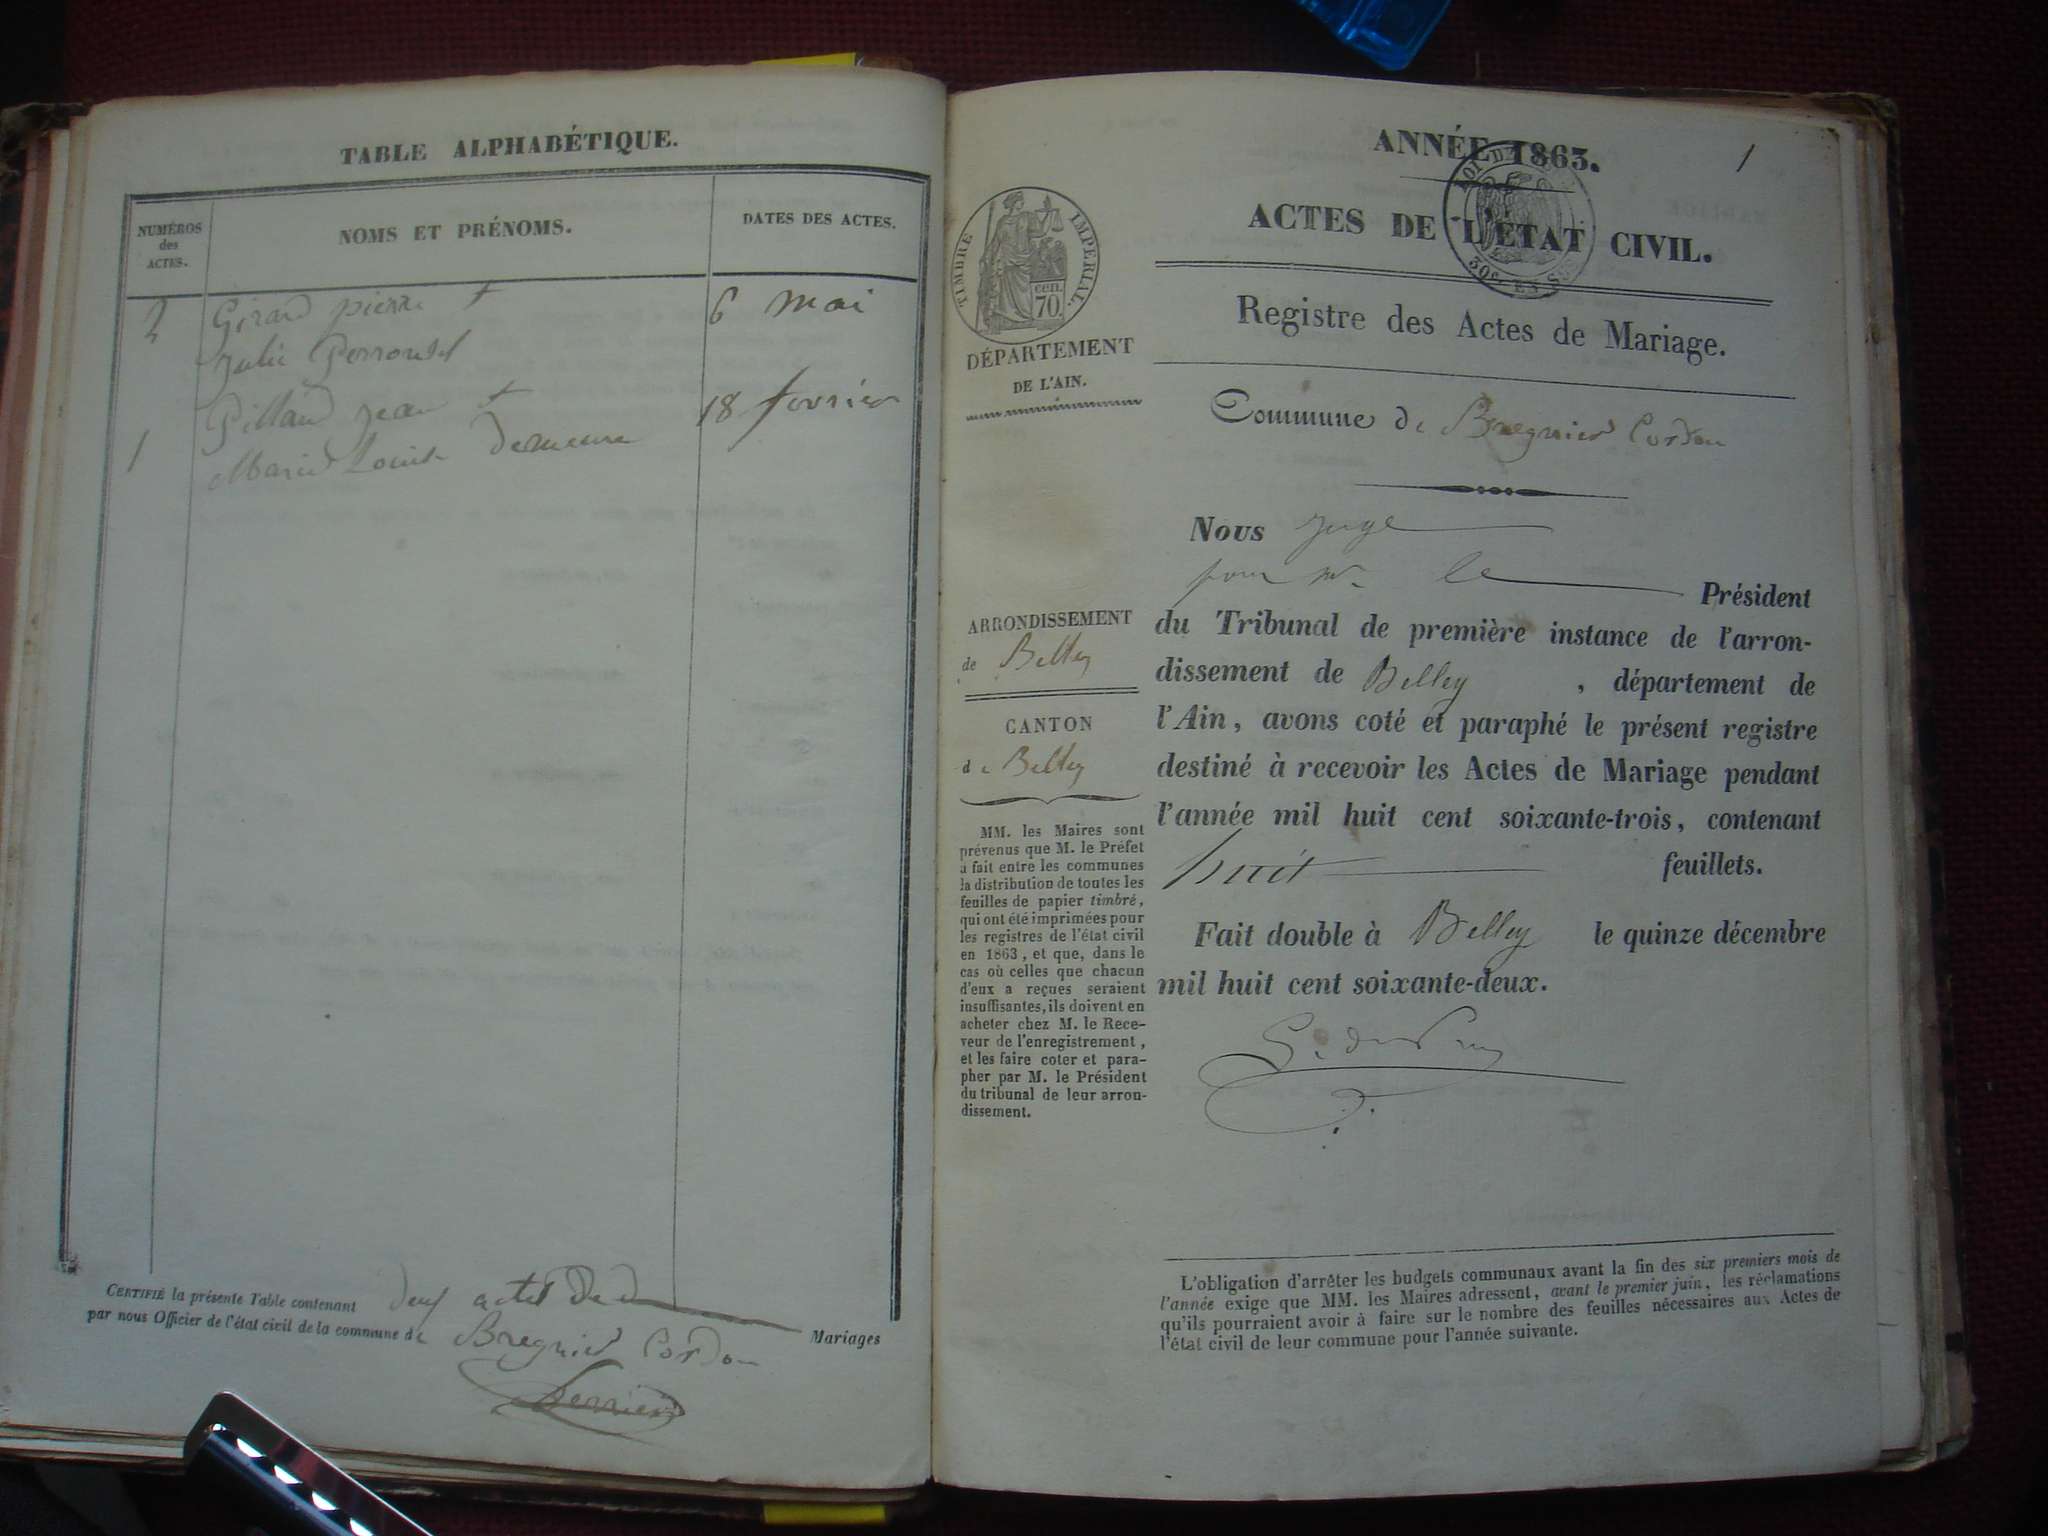 TABLE ALPHABÉTIQUE.
NUMÉROS
des
ACTES.
NOMS ET PRÉNOMS.
DATES DES ACTES.
2 Girard pierre + 6 mai
Julie Perroudet
Pillaud Jean + 18 fevrier
1 Marie Louise Demeure
CERTIFIÉ la présente Table contenant deux actes De Mariages
par nous Officier de l'état civil de la commune de Bregnier Cordon
Perrier
ANNÉE 1863.
1
ACTES DE L'ÉTAT CIVIL.
TIMBRE IMPÉRIAL.
CEN.
70.
Registre des Actes de Mariage.
DÉPARTEMENT
DE L'AIN.
Commune de Bregnier Cordon
Nous juge
pour Mr le Président
ARRONDISSEMENT
de Belley
CANTON
de Belley
du Tribunal de première instance de l'arron-
dissement de Belley , département de
l'Ain, avons coté et paraphé le présent registre
destiné à recevoir les Actes de Mariage pendant
l'année mil huit cent soixante-trois, contenant
huit feuillets.
Fait double à Belley le quinze décembre
mil huit cent soixante-deux.
MM. les Maires sont
prévenus que M. le Préfet
a fait entre les communes
la distribution de toutes les
feuilles de papier timbré,
qui ont été imprimées pour
les registres de l'état civil
en 1863, et que, dans le
cas où celles que chacun
d'eux a reçues seraient
insuffisantes, ils doivent en
acheter chez M. le Rece-
veur de l'enregistrement,
et les faire coter et para-
pher par M. le Président
du tribunal de leur arron-
dissement.
L'obligation d'arrêter les budgets communaux avant la fin des six premiers mois de
l'année exige que MM. les Maires adressent, avant le premier juin, les réclamations
qu'ils pourraient avoir à faire sur le nombre des feuilles nécessaires aux Actes de
l'état civil de leur commune pour l'année suivante.